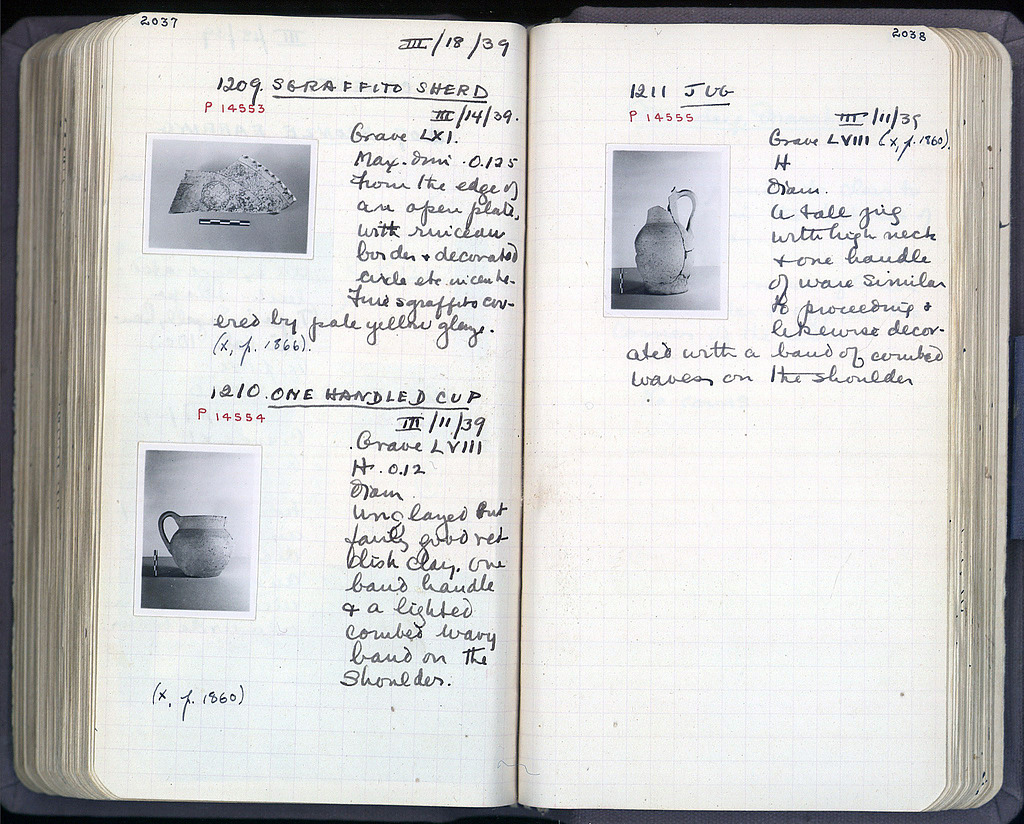 2037
III/18/39
1209. SGRAFFITO SHERD
P 14553
III/14/39.
Grave LXI.
Max. dim. 0.125
From the edge of
an open plate,
with rinceau
border & decorated
circle etc. in cente.
Fine sgraffito cov-
ered by pale yellow glaze.
(x, p. 1866).
1210. ONE HANDLED CUP
P 14554
III/11/39
Grave LVIII
H. 0.12
Diam.
Unglazed but
fairly good red
dish clay. One
band handle
& a lighted
combed wavy
band on the
shoulder.
(x, p. 1860)
2038
1211 JUG
P 14555
III/11/39
Grave LVIII (x, p. 1860).
H
Diam.
A tall jug
with high neck
& one handle
of ware similar
to proceeding &
likewise decor-
ated with a band of combed
waves on the shoulder